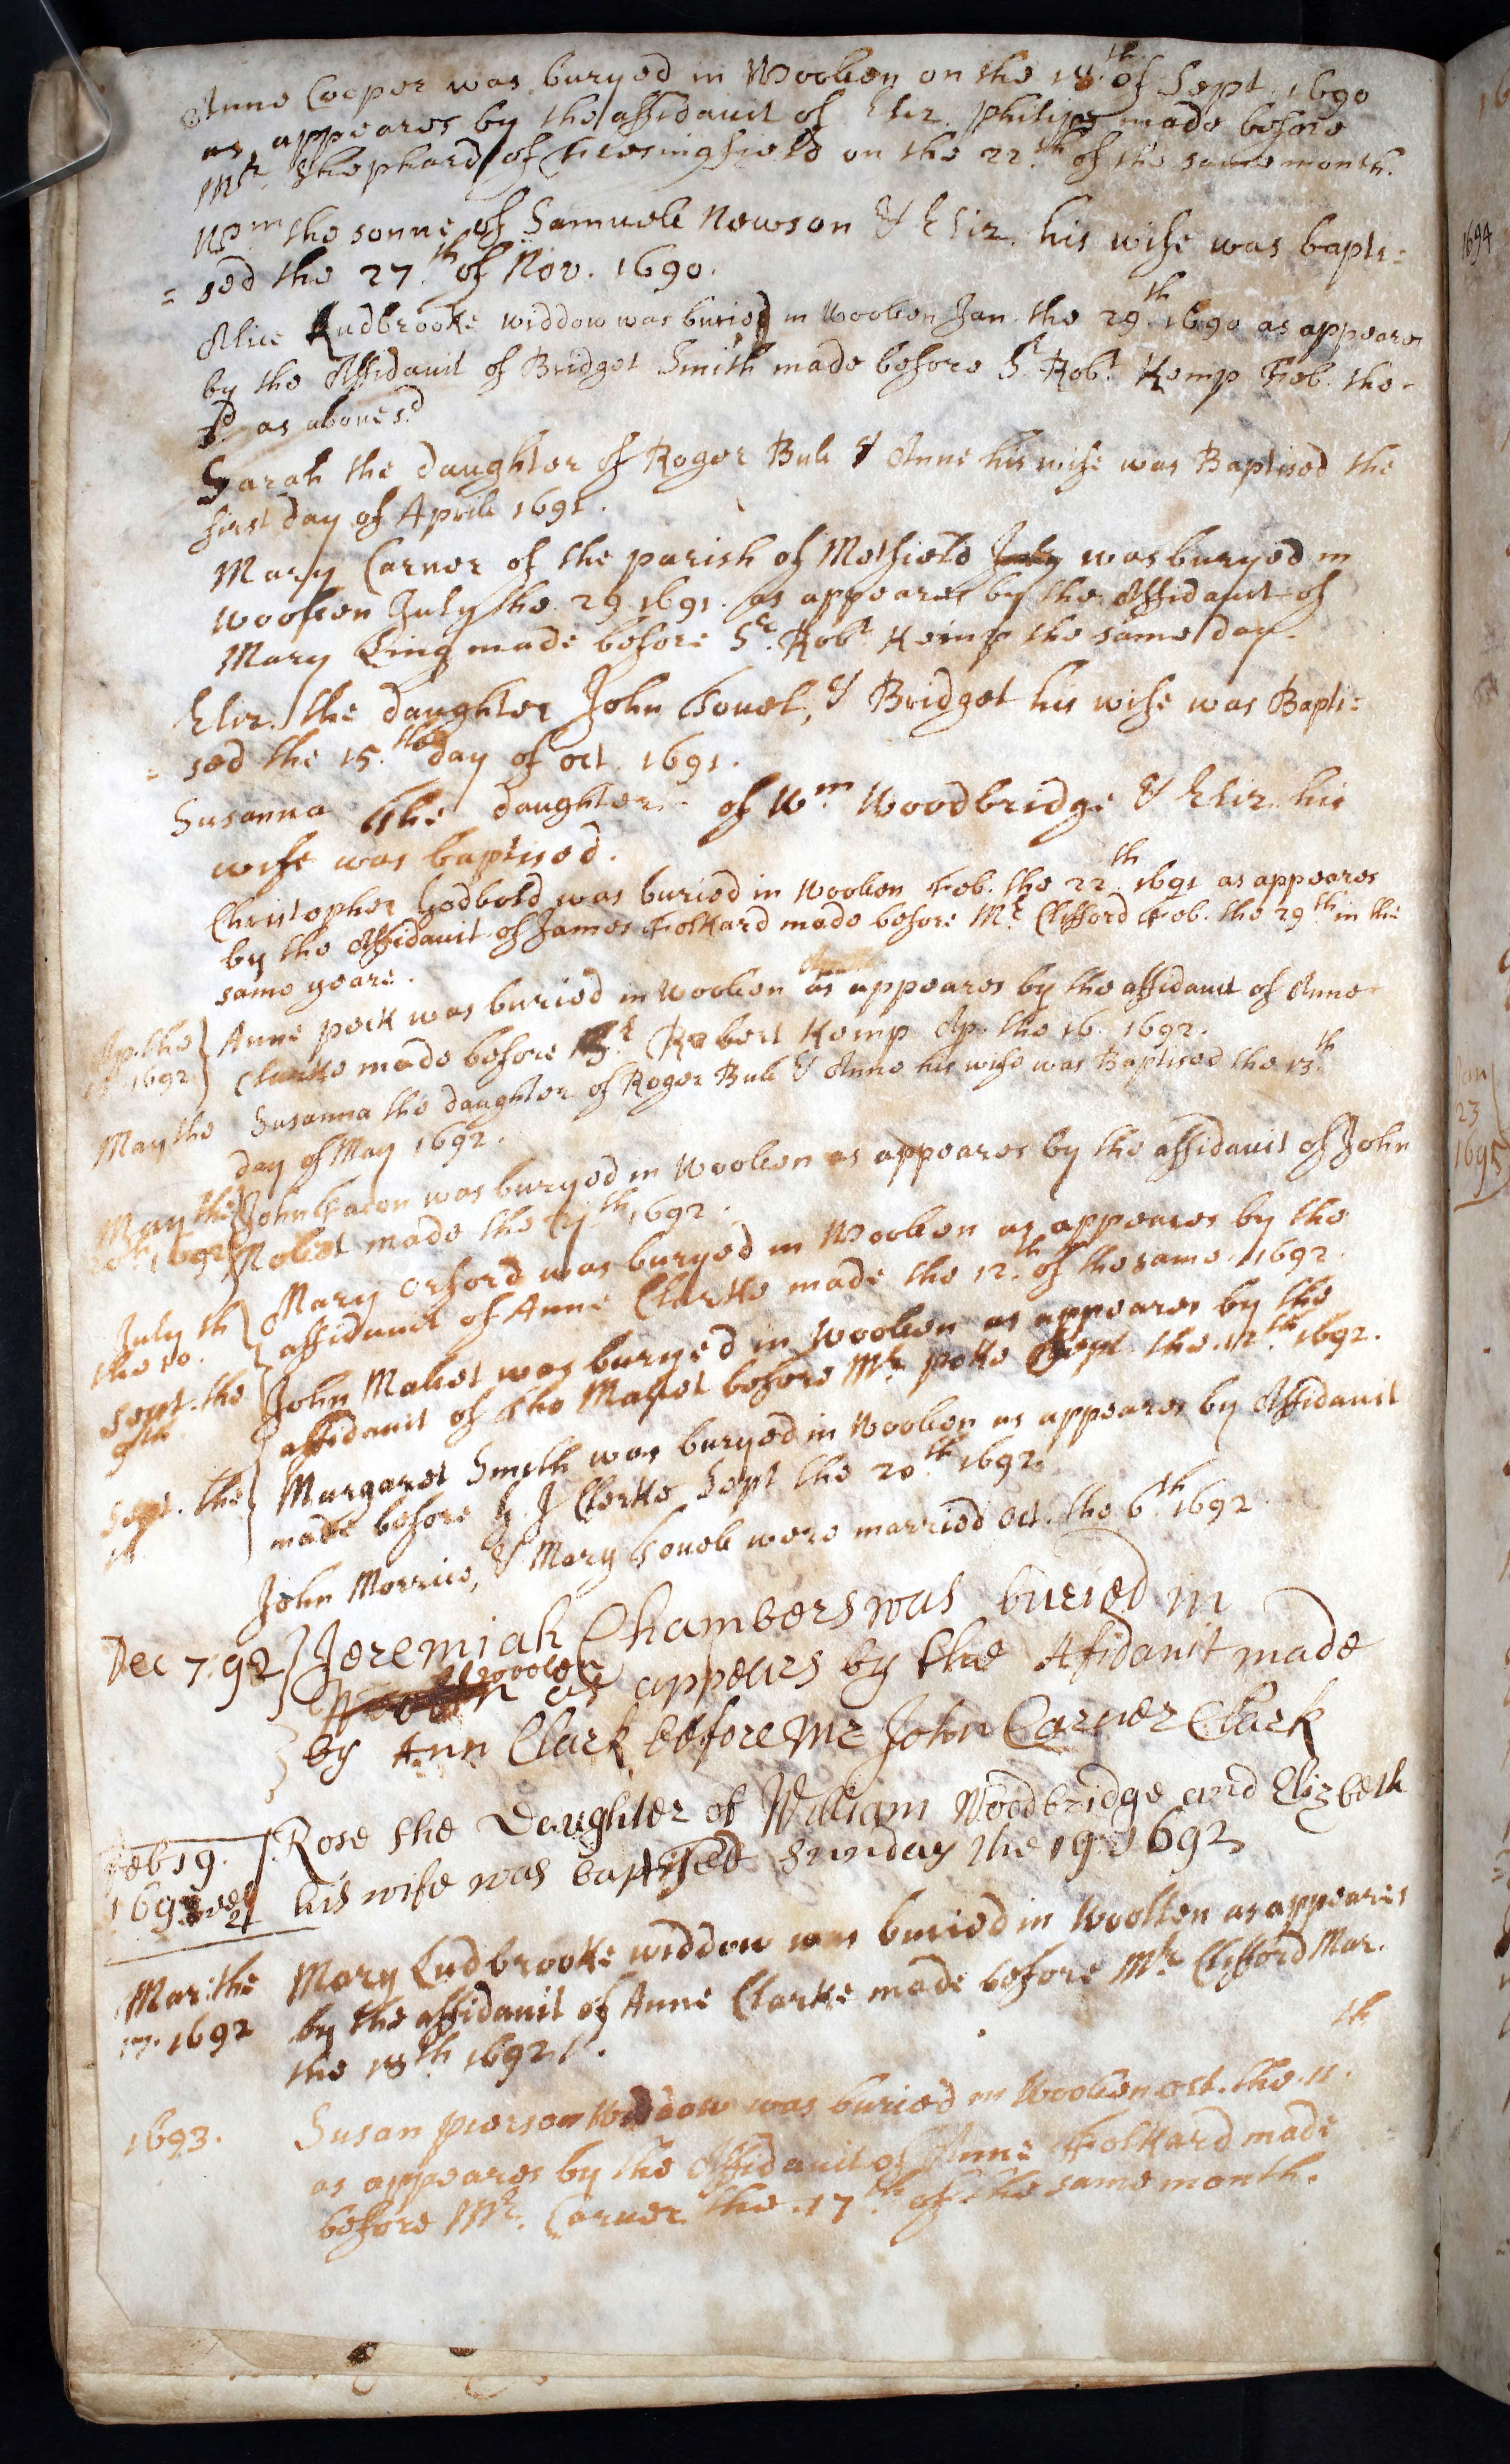 Anne Cooper was buryed in Woollen on the 18.th of Sept. 1690
as appeares by the affidavit of Eliz. Philips made before
Mr. Shephard of Fresingfield on the 22.th of the same month.
Wm the sonne of Samuell Newson & Eliz. his wife was bapti=
= sed the 27.th of Nov. 1690.
Alice Ludbrooke widdow was buried in woollen Jan. the 29.th 1690 as appeares
by the Affidavit of Bridget Smith made before Sr. Robt. Kemp Feb. the
3d. as aboues.d
Sarah the daughter of Roger Bull & Anne his wife was Baptised the
first day of Aprill 1691.
Mary Carver of the parish of Metfield July was buryed in
woollen July the 29. 1691. as appeares by the Affidavit of
Mary King made before Sr. Robt. Kemp the same day.
Eliz. the daughter John Bouel, & Bridget his wife was Bapti=
= sed the 15.th day of oct. 1691.
Susanna the daughter of Wm. Woodbridge & Eliz. his
wife was baptised.
Christopher Godbold was buried in woollen Feb. the 22.th 1691 as appeares
by the Affidavit of James Folkard made before Mr. Clifford Feb. the 29th in the
same yeare.
Ap. the Anne peck was buried in woollen as appeares by the affidavit of Anne
1692 Clarke made before Sr. Robert Kemp Ap. the 16. 1692.
May the Susanna the daughter of Roger Bull & Anne his wife was Baptised the 13.th
day of May 1692.
May the John Bacon was buryed in Woollen as appeares by the affidavit of John
20th 1692 made the 27th 1692.
July th Mary Orford was buryed in Woollen as appeares by the
the 10. affidavit of Anne Clarke made the 12.th of the same 1692.
Sept. the John Mabet was buryed in woollen as appeares by the
9th affidavit of Tho Mabet before Mr. poke Sept. the 12.th 1692.
Sept. the Margaret Smith was buryed in Woollen as appeares by Affidavit
made before Clerke Sept the 20.th 1692.
John Morrice, & Mary Bouell were married Oct. the 6.th 1692.
Dec 7:92 Jeremiah Chambers was buried in
woolen
as appeurs by the Afidavit made
by Ann Clark before Mr John Carver Clark
Feb 19. Rose the Daughter of William Woodbridge and Elizbeth
his wife was baptised sunday the 19. 1692
Mar: the Mary Ludbrooke widdow was buried in Woollen as appeares
17. 1692 by the affidavit of Anne Clarke made before Mr. Clifford Mar.
the 18th 1692.
1693. Susan pierson widdow was buried in Woollen oct. the 11.th
as appeares by the Affidavit of Anne Folkard made
before Mr. Carver the 17.th of the same month.
1694
Jan
23
1695